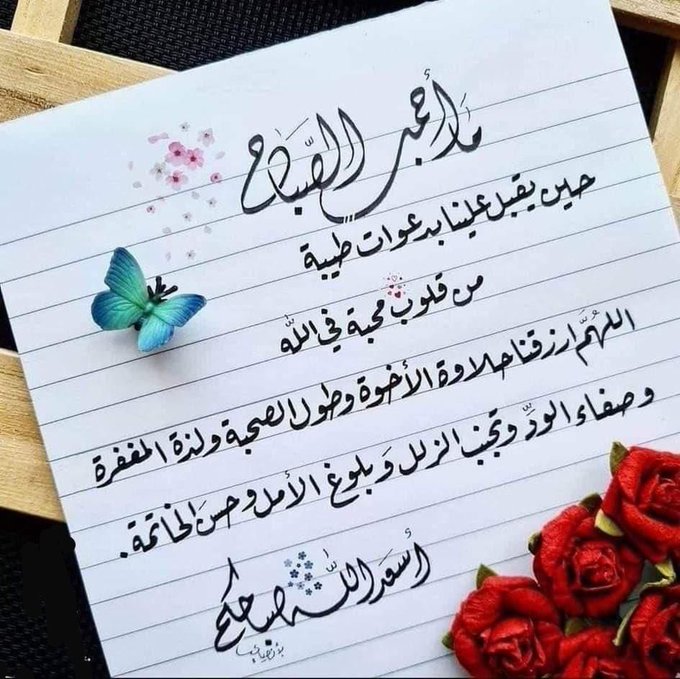 ما أجمل الصَّباح
حين يقبل علينا بدعوات طيبة
من قلوب محبة في الله
اللهُمَّ ارزقنا حلاوة الأخوة وطول الصحبة ولذة المغفرة
وصفاء الودِّ وتجنب الزلل وَبلوغ الأمل وحسنَ الخاتمة.
أسعد اللّه صباحكم